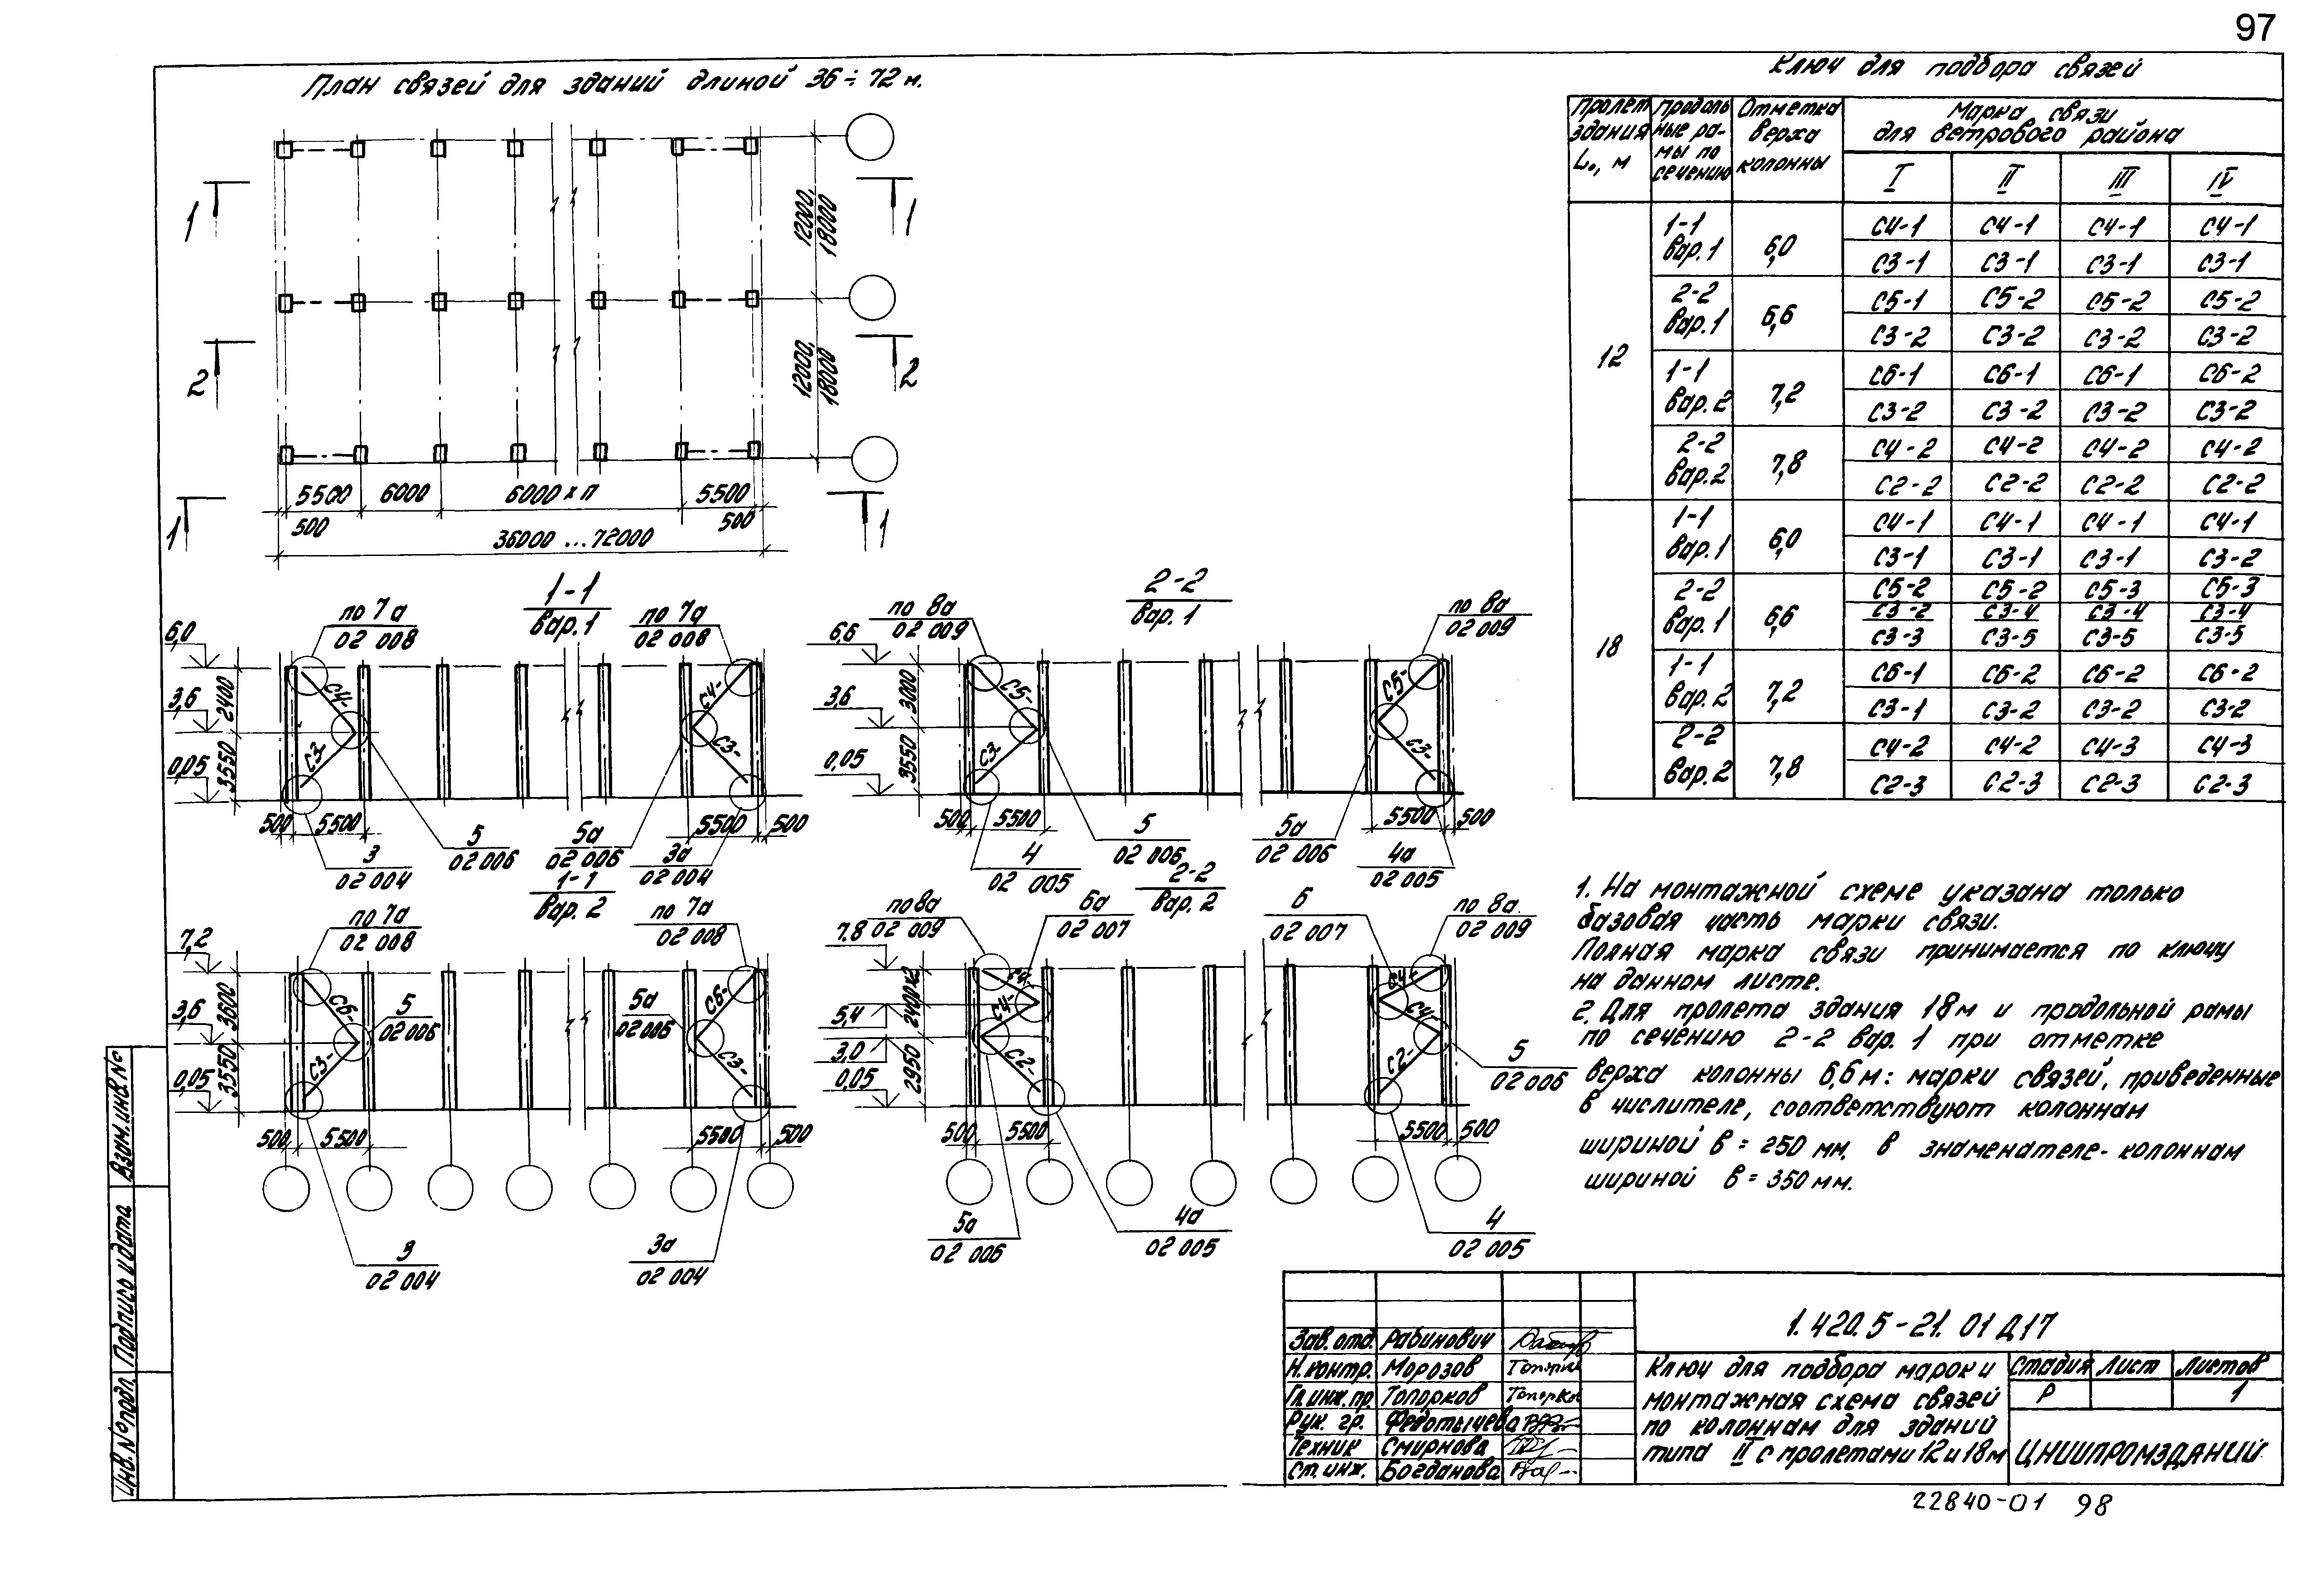 97
План связей для зданий длиной 36÷72 м.
1
1
12000,
18000
2
2
12000,
18000
5500
6000
6000 х П
5500
500
500
36000 ... 72000
1
1
1-1
вар. 1
по 7а
02 008
по 7а
02 008
6,0
3,6
0,05
2400
3550
С4-
С3-
С4-
С3-
500
5500
5500
500
3
02 004
5
02 006
5а
02 006
3а
02 004
2-2
вар. 1
по 8а
02 009
по 8а
02 009
6,6
3,6
0,05
3000
3550
С5-
С3-
С5-
С3-
500
5500
5500
500
4
02 005
5
02 006
5а
02 006
4а
02 005
1-1
вар. 2
по 7а
02 008
по 7а
02 008
7,2
3,6
0,05
3600
3550
С6-
С3-
С6-
С3-
5
02 006
5а
02 006
500
5500
5500
500
3
02 004
3а
02 004
2-2
вар. 2
по 8а
02 009
6а
02 007
6
02 007
по 8а
02 009
7,8
5,4
3,0
0,05
2400х2
2950
С4-
С4-
С2-
С4-
С4-
С2-
5
02 006
500
5500
5500
500
5а
02 006
4а
02 005
4
02 005
Ключ для подбора связей
Пролет здания L₀, м
Продольные рамы по сечению
Отметка верха колонны
Марка связи для ветрового района
I II III IV
12
1-1 вар. 1 6,0 С4-1 С4-1 С4-1 С4-1
С3-1 С3-1 С3-1 С3-1
2-2 вар. 1 6,6 С5-1 С5-2 С5-2 С5-2
С3-2 С3-2 С3-2 С3-2
1-1 вар. 2 7,2 С6-1 С6-1 С6-1 С6-2
С3-2 С3-2 С3-2 С3-2
2-2 вар. 2 7,8 С4-2 С4-2 С4-2 С4-2
С2-2 С2-2 С2-2 С2-2
18
1-1 вар. 1 6,0 С4-1 С4-1 С4-1 С4-1
С3-1 С3-1 С3-1 С3-2
2-2 вар. 1 6,6 С5-2 С5-2 С5-3 С5-3
С3-2 С3-4 С3-4 С3-4
С3-3 С3-5 С3-5 С3-5
1-1 вар. 2 7,2 С6-1 С6-2 С6-2 С6-2
С3-1 С3-2 С3-2 С3-2
2-2 вар. 2 7,8 С4-2 С4-2 С4-3 С4-3
С2-3 С2-3 С2-3 С2-3
1. На монтажной схеме указана только
базовая часть марки связи.
Полная марка связи принимается по ключу
на данном листе.
2. Для пролета здания 18 м и продольной рамы
по сечению 2-2 вар. 1 при отметке
верха колонны 6,6 м: марки связей, приведенные
в числителе, соответствуют колоннам
шириной в = 250 мм, в знаменателе - колоннам
шириной в = 350 мм.
Взам. инв. №
Подпись и дата
Инв. № подл.
Зав. отд. Рабинович
Н. контр. Морозов
Гл. инж. пр. Топорков
Рук. гр. Федотычева
Техник Смирнова
Ст. инж. Богданова
1.420.5-21. 01 Д17
Ключ для подбора марок и
монтажная схема связей
по колоннам для зданий
типа II с пролетами 12 и 18 м
Стадия Лист Листов
Р 1
ЦНИИПРОМЗДАНИЙ
22840-01 98